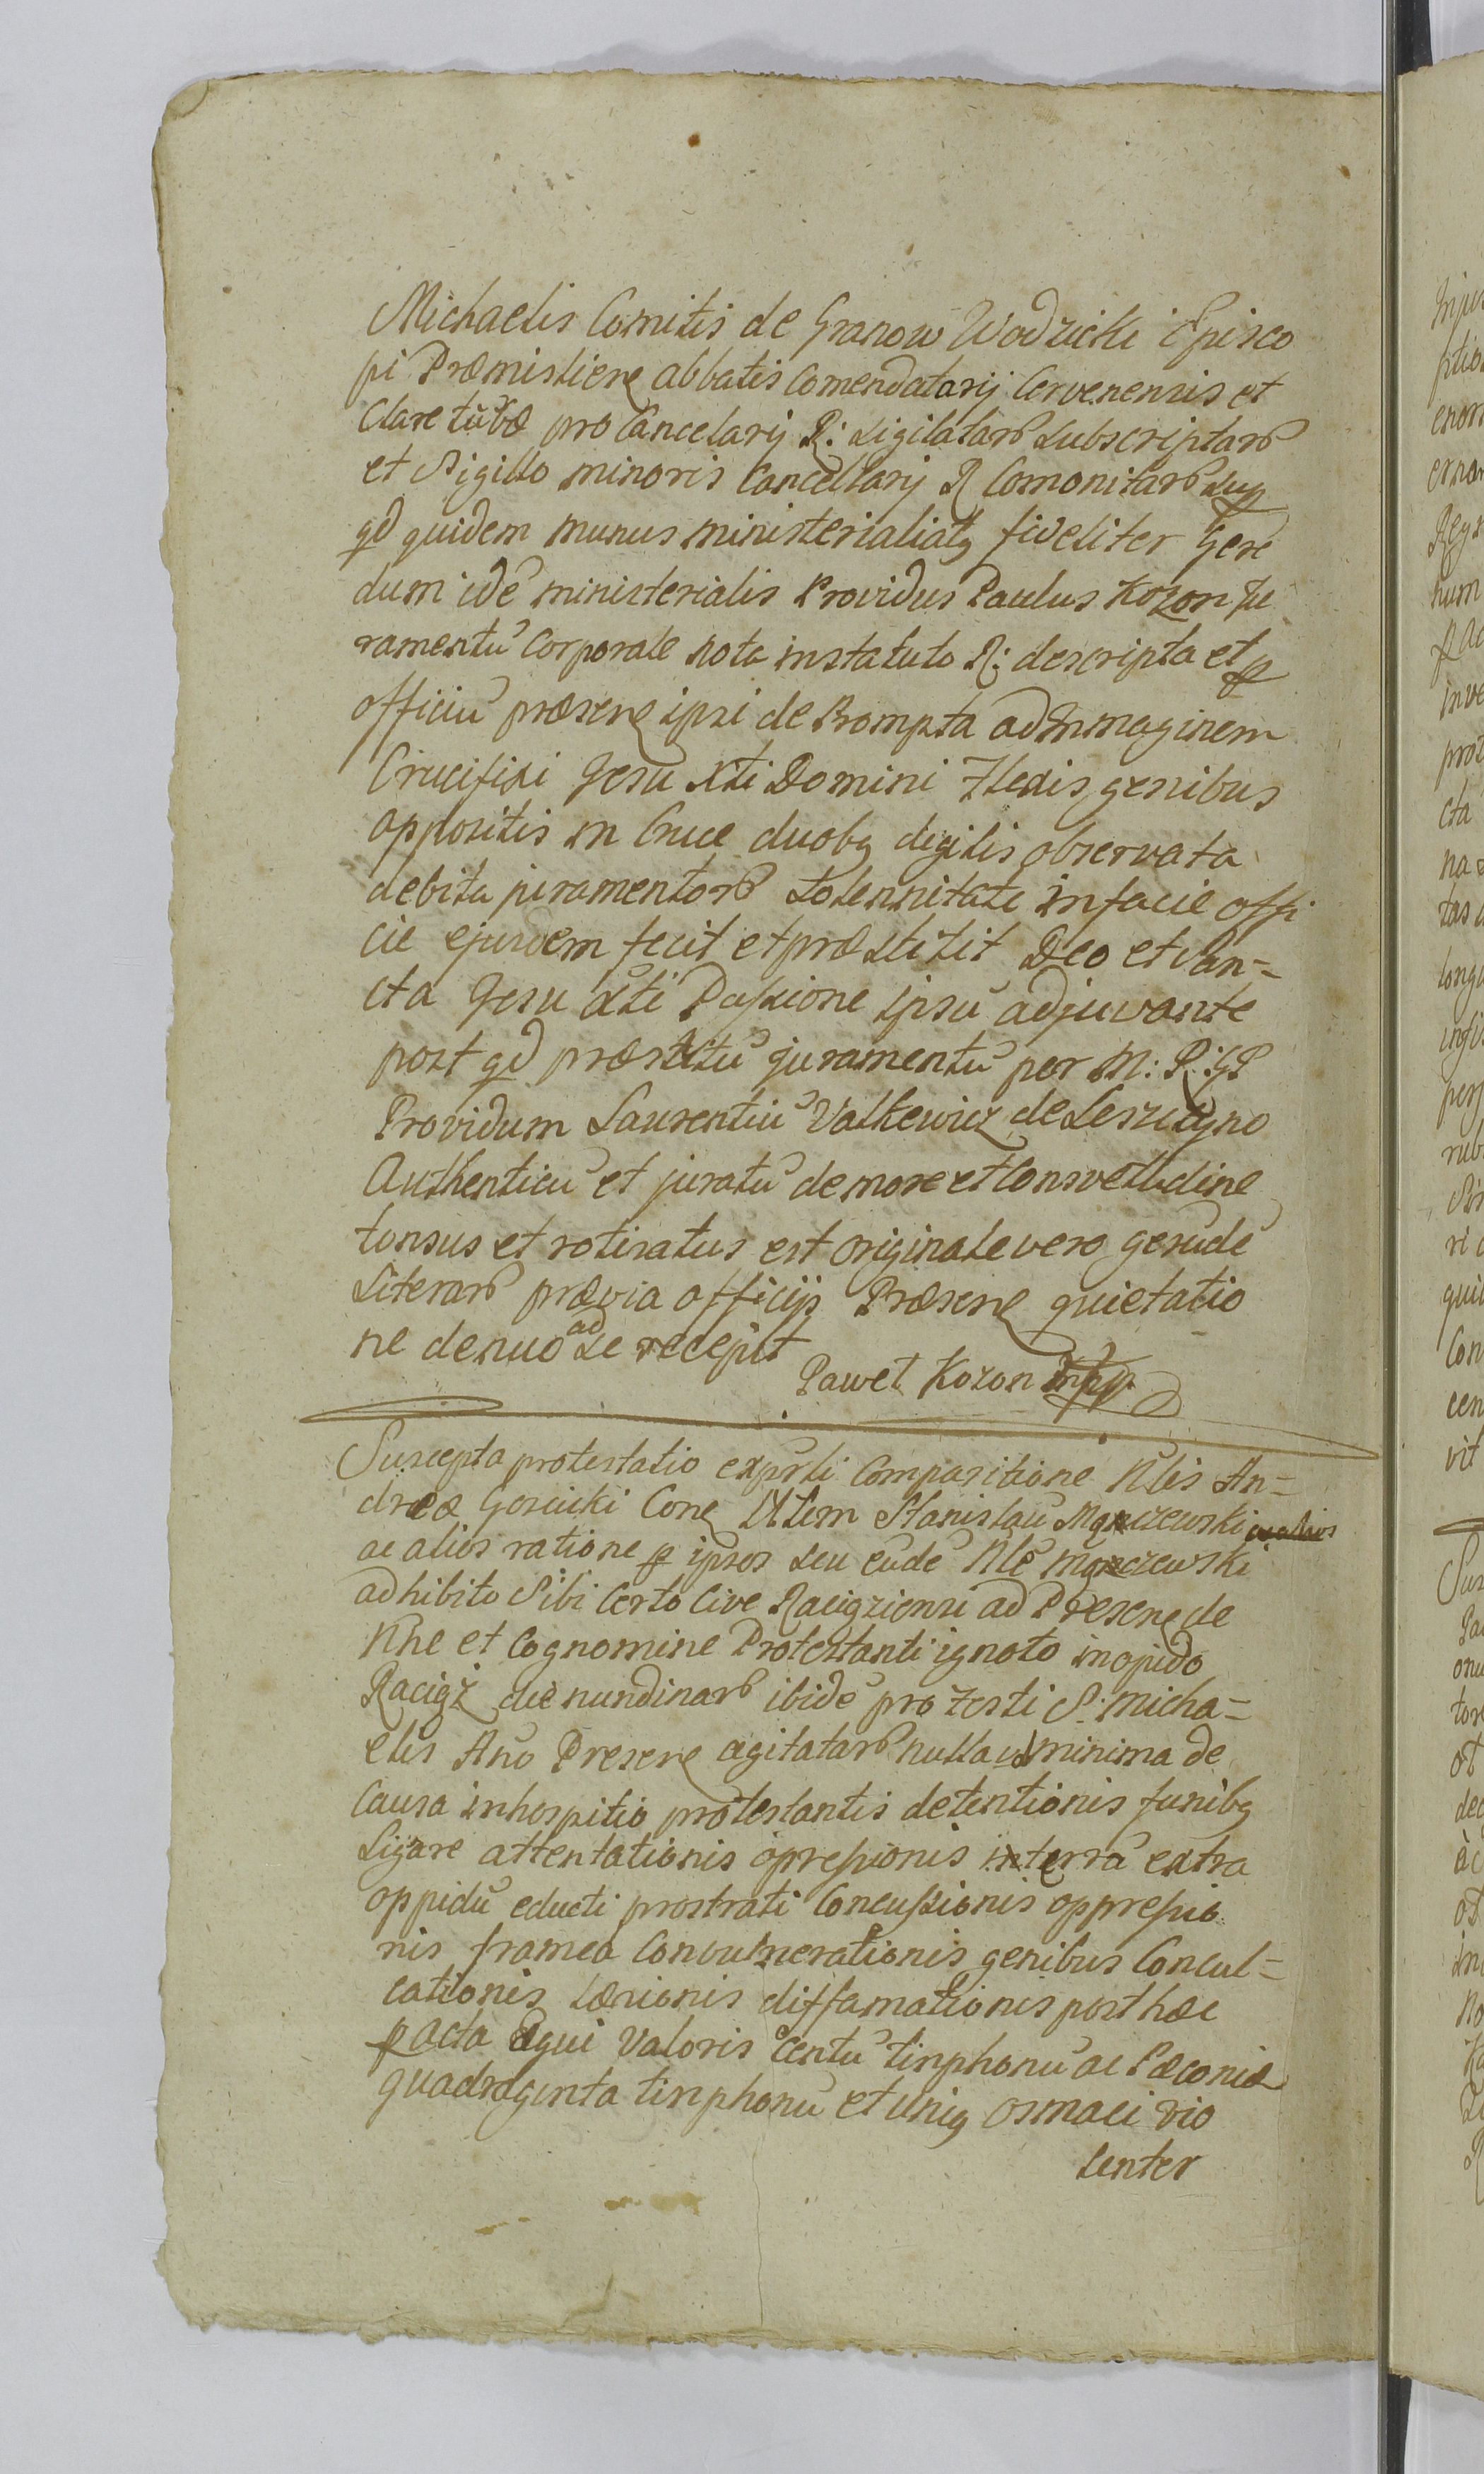 Michaelis Comitis de Granow Wodzicki Episco
pi Præmislien abbatis Comendatarij Cervenensis et
Claretūbæ pro Cancelarij R: Sigilatarū Subscriptarū
et Sigillo minoris Cancellarij R Comonitarū sup
qd quidem munus ministerialiatq fideliter Gere
dum idē ministerialis Providus Paulus Kozon Ju
ramentū Corporale Rota in statuto R: descripta et p
officiū præsens ipsi de Prompta ad Immaginem
Crucifixi Jesu Xti Domini Flexis genibus
appositis in Cruce duobq digitis observata
debita juramentorū Solennitate in facie offi
cii ejusdem fecit et præstitit Deo et San=
cta Jesu Xti Passione ipsū adjuvante
post qd præstitū juramentū per M: R: GP
Providum Laurentiū Valkewicz de Leszczyno
Authenticū et juratū de more et Consvetudine
tonsus et rotisatus est originale vero gerudē
Literarū prævia officijs Præsens quietatio
ne denuo ad se recepit
Paweł Kozon mpp
Suscepta protestatio ex pti Comparitione Nlis An=
dreæ Gosicki Cone Nlem Stanislaū Mączewski
ac alios ratione p ipsos seu eudē Nlē Mączewski
adhibito Sibi Certo Cive Raciąziensi ad Presens de
Nne et Cognomine Protestanti ignoto in opido
Raciąż die nundinarū ibidē pro Festi S: Micha=
elis Ano Presens agitatarū nulla vel minima de
Causa in hospitio protestantis detentionis funibq
Ligare attentationis opressionis in terrā extra
oppidū educti prostrati Concussionis oppressio
nis framea Convulnerationis genibus Concul=
cationis Læsionis diffamationis post hæc
pacta Equi Valoris Centū tinphonū ac Pæconiæ
quadraginta tinphonū et uniq osmaci vio
lenter